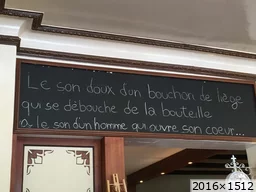 Le son doux d'un bouchon de liège
qui se débouche de la bouteille
le son d'un homme qui ouvre son coeur...